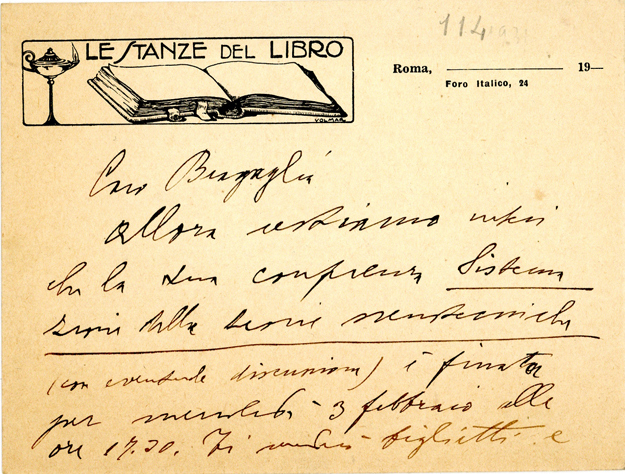 114
LE STANZE DEL LIBRO
VOLMAR
Roma, 19—
Foro Italico, 24
Caro Bragaglia
allora restiamo intesi
che la sua conferenza Sistema
zione della teorie scenotecniche
(con eventuale discussione) è fissata
per mercoledì 3 febbraio alle
ore 17.30. Ti biglietti e